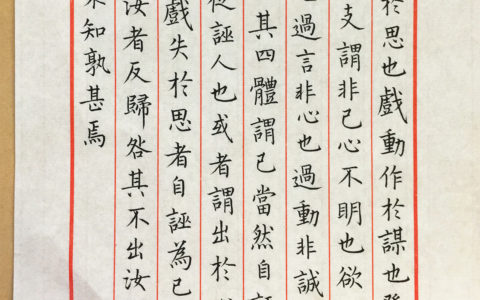 於思也戲動作於謀也發
支謂非己心不明也欲
也過言非心也過動非誠
其四體謂己當然自誣
從誣人也或者謂出於
戲失於思者自誣為己
汝者反歸咎其不出汝
不知孰甚焉